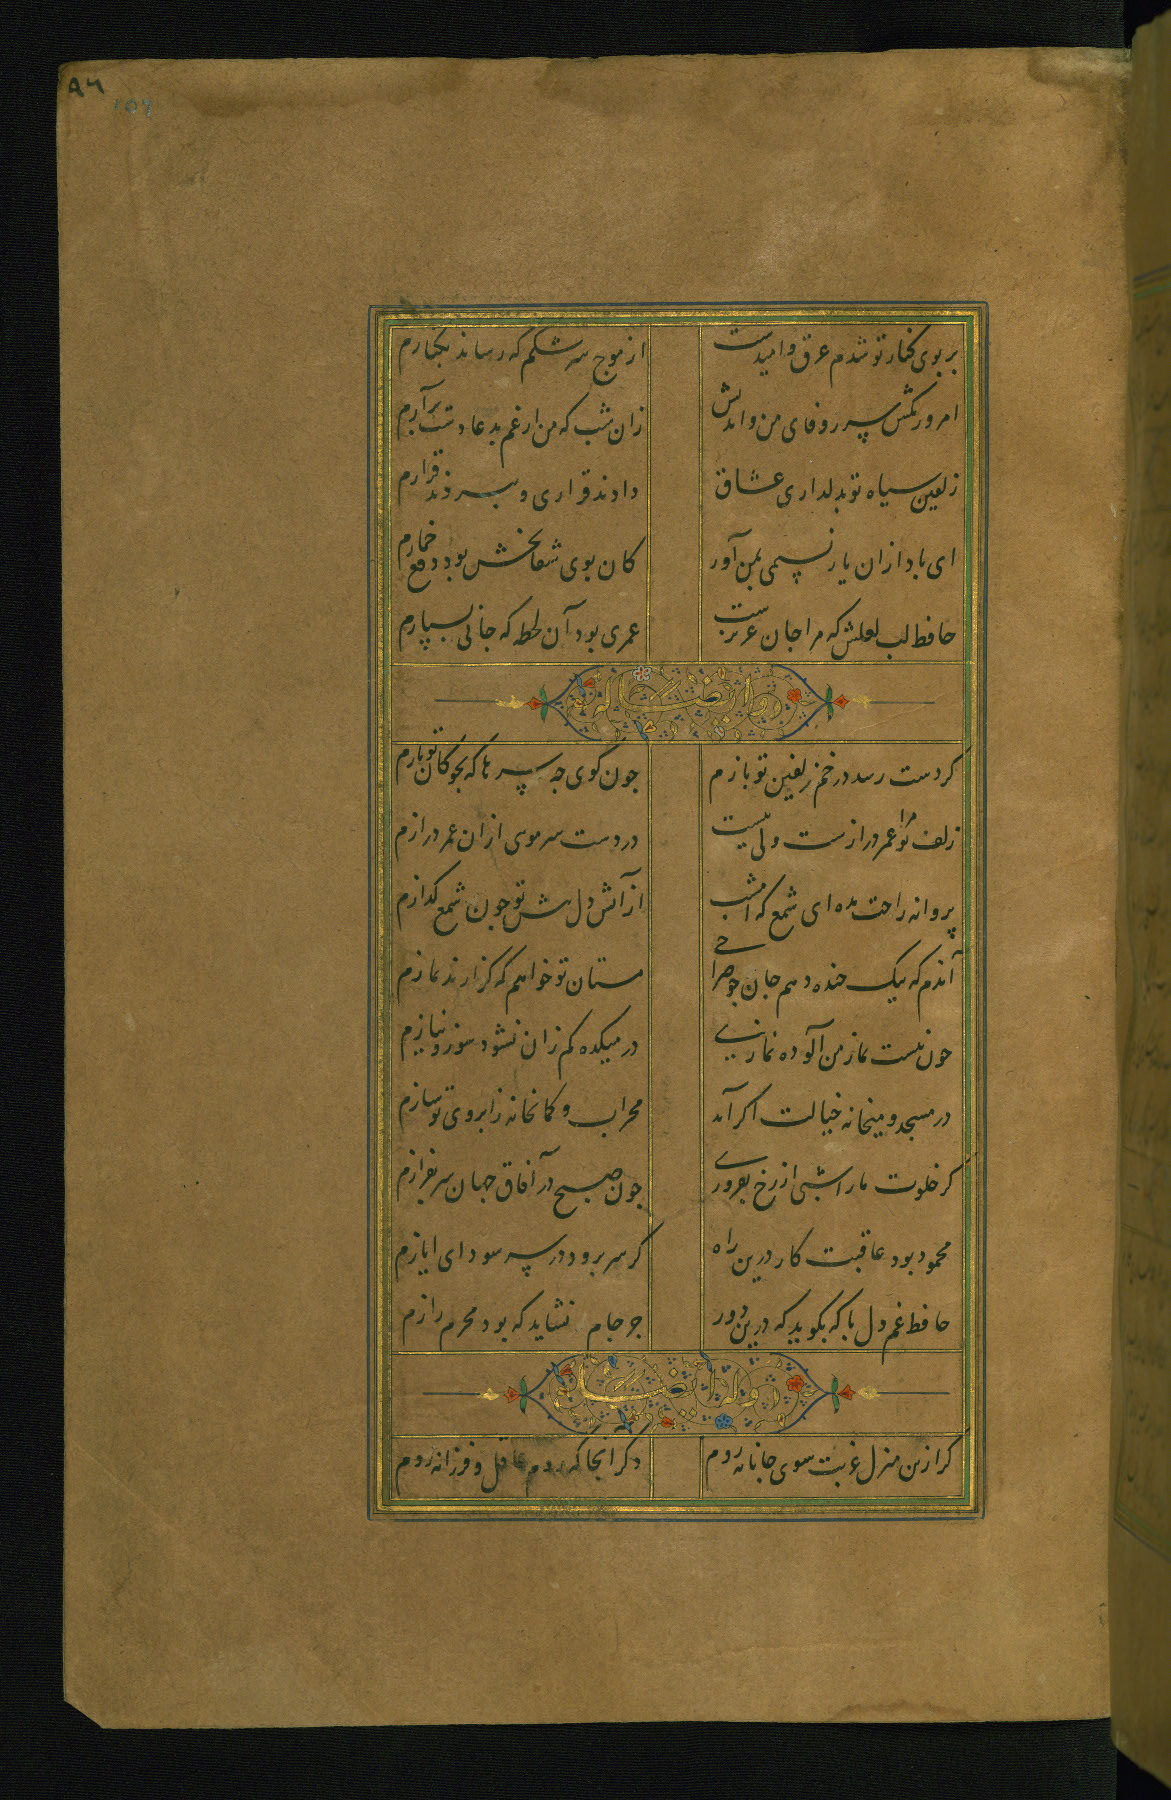 ٩٦
بر بوی کنار تو شدم غرق و امیدست از موج سرشکم که رساند بکنارم
امروز مکش سر ز وفای من و اندیش زان شب که من از غم بدعا دست برآرم
زلفین سیاه تو بدلداری عشاق دادند قراری و ببردند قرارم
ای باد از ان یار نسیمی بمن آور کان بوی شفابخش بود دفع خمارم
حافظ لب لعلش که مرا جان عزیزست عمری بود آن لحظه که جانی بسپارم
و له ایضا
کر دست رسد در خم زلفین تو بازم چون کوی چه سرها که بچوکان تو بازم
زلف تو مرا عمر درازست ولی نیست در دست سر موی از ان عمر درازم
پروانه راحت بده ای شمع که امشب از آتش دل پیش تو چون شمع کدازم
آندم که بیک خنده دهم جان چو صراحی مستان تو خواهم که کزارند نمازم
چون نیست نماز من آلوده نمازی در میکده کم زان نشود سوز و نیازم
در مسجد و میخانه خیالت اکر آید محراب و کمانخانه ز ابروی تو سازم
کر خلوت ما را شبی از رخ بفروزی چون صبح در آفاق جهان سر بفرازم
محمود بود عاقبت کار درین راه کر سر برود در سر سودای ایازم
حافظ غم دل با که بکوید که درین دور جز جام نشاید که بود محرم رازم
و له ایضا
کر ازین منزل غربت سوی جانانه روم دکر انجا که روم عاقل و فرزانه روم